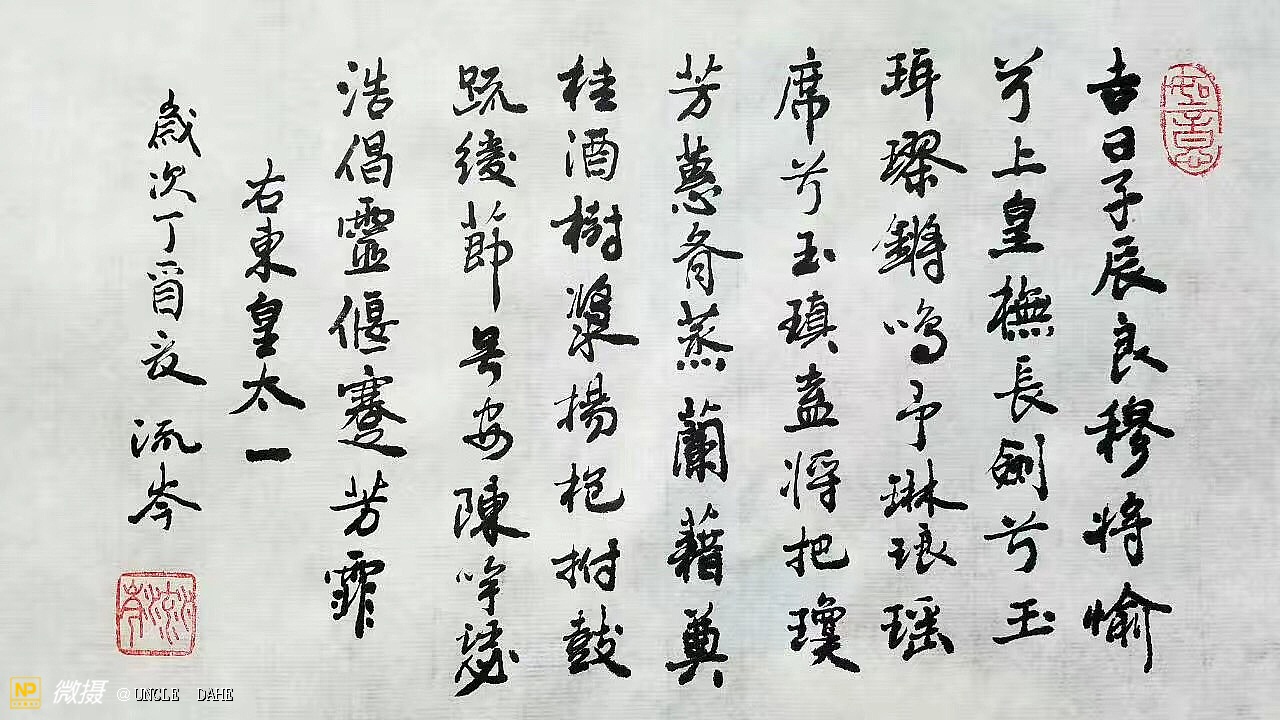 如意
吉日兮辰良穆将愉
兮上皇撫長劍兮玉
珥璆鏘鳴兮琳琅瑶
席兮玉瑱盍将把瓊
芳蕙肴蒸蘭藉奠
桂酒椒漿揚枹拊鼓
疏緩節兮安陳竽瑟
浩倡靈偃蹇芳霏
右東皇太一
歲次丁酉夏流岑
流岑
NP 微摄 @UNCLE DAHE